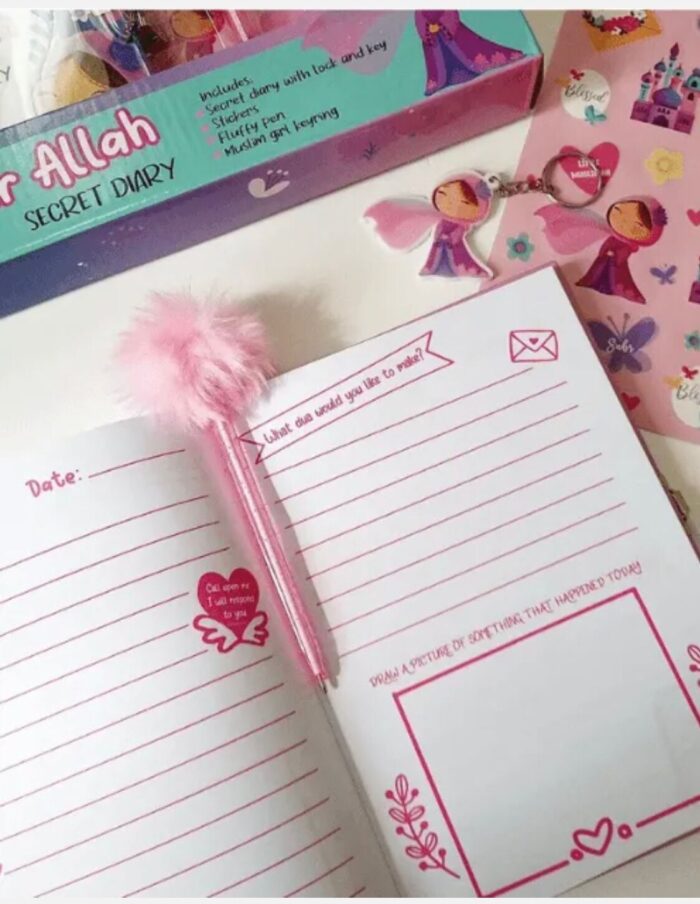 r Allah
SECRET DIARY
Includes:
Secret diary with lock and key
Stickers
Fluffy pen
Muslim girl keyring
Blessed
LITTLE
Sabr
What dua would you like to make?
Date:
Call upon me
I will respond
to you
DRAW A PICTURE OF SOMETHING THAT HAPPENED TODAY